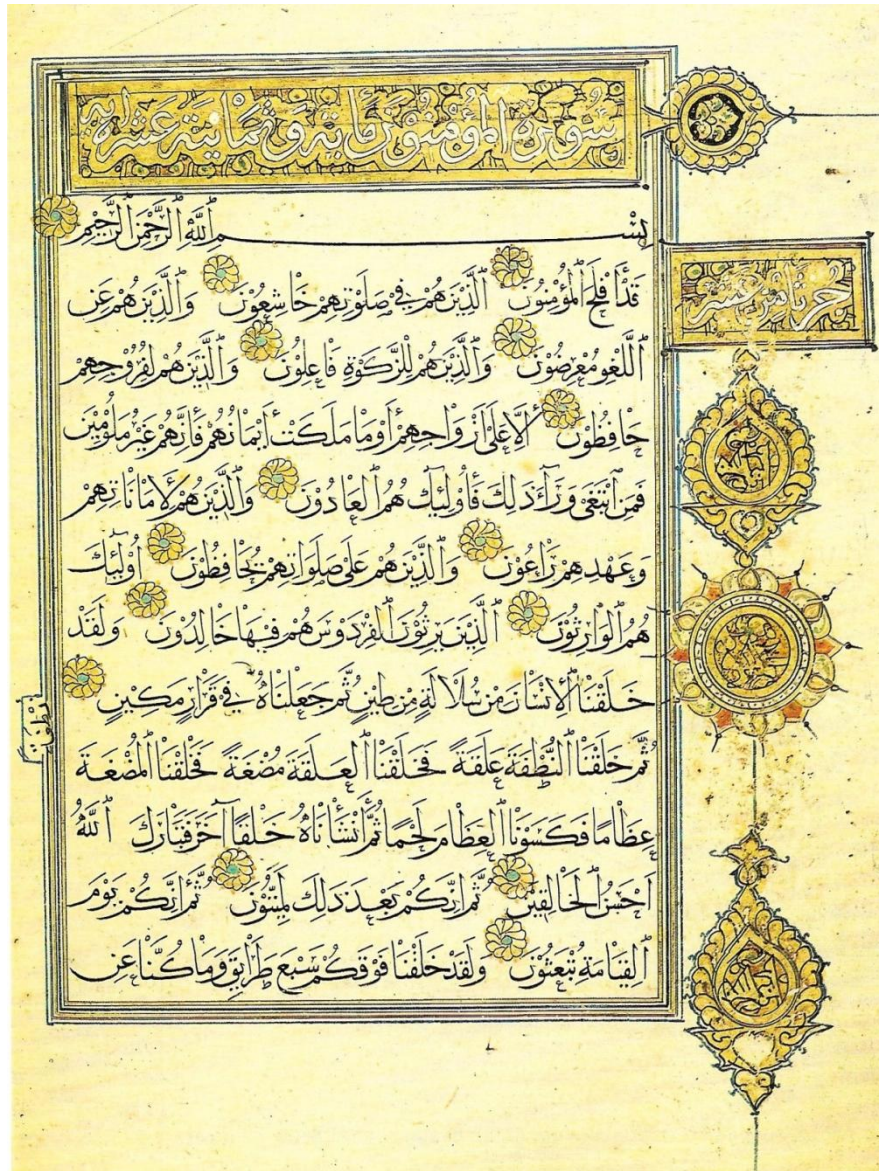 سورة المؤمنون ماية وثمانية عشر اية
بِسْمِ ٱللَّهِ ٱلرَّحْمٰنِ ٱلرَّحِيْمِ
قَدْ أَفْلَحَ ٱلْمُؤْمِنُوْنَ ٱلَّذِيْنَ هُمْ فِيْ صَلَوٰتِهِمْ خَاشِعُوْنَ وَٱلَّذِيْنَ هُمْ عَنِ
ٱللَّغْوِ مُعْرِضُوْنَ وَٱلَّذِيْنَ هُمْ لِلزَّكَوٰةِ فَاعِلُوْنَ وَٱلَّذِيْنَ هُمْ لِفُرُوْجِهِمْ
حَافِظُوْنَ إِلَّا عَلَى أَزْوَاجِهِمْ أَوْ مَا مَلَكَتْ أَيْمَانُهُمْ فَإِنَّهُمْ غَيْرُ مَلُوْمِيْنَ
فَمَنِ ٱبْتَغَى وَرَآءَ ذَلِكَ فَأُولَئِكَ هُمُ ٱلْعَادُوْنَ وَٱلَّذِيْنَ هُمْ لِأَمَانَاتِهِمْ
وَعَهْدِهِمْ رَاعُوْنَ وَٱلَّذِيْنَ هُمْ عَلَى صَلَوَاتِهِمْ يُحَافِظُوْنَ أُولَئِكَ
هُمُ ٱلْوَارِثُوْنَ ٱلَّذِيْنَ يَرِثُوْنَ ٱلْفِرْدَوْسَ هُمْ فِيْهَا خَالِدُوْنَ وَلَقَدْ
خَلَقْنَا ٱلْإِنْسَانَ مِنْ سُلَالَةٍ مِنْ طِيْنٍ ثُمَّ جَعَلْنَاهُ فِيْ قَرَارٍ مَكِيْنٍ
ثُمَّ خَلَقْنَا ٱلنُّطْفَةَ عَلَقَةً فَخَلَقْنَا ٱلْعَلَقَةَ مُضْغَةً فَخَلَقْنَا ٱلْمُضْغَةَ
عِظَامًا فَكَسَوْنَا ٱلْعِظَامَ لَحْمًا ثُمَّ أَنْشَأْنَاهُ خَلْقًا آخَرَ فَتَبَارَكَ ٱللَّهُ
أَحْسَنُ ٱلْخَالِقِيْنَ ثُمَّ إِنَّكُمْ بَعْدَ ذَلِكَ لَمَيِّتُوْنَ ثُمَّ إِنَّكُمْ يَوْمَ
ٱلْقِيَامَةِ تُبْعَثُوْنَ وَلَقَدْ خَلَقْنَا فَوْقَكُمْ سَبْعَ طَرَائِقَ وَمَا كُنَّا عَنِ
جزء ثامن عشر
نُطْفَةً